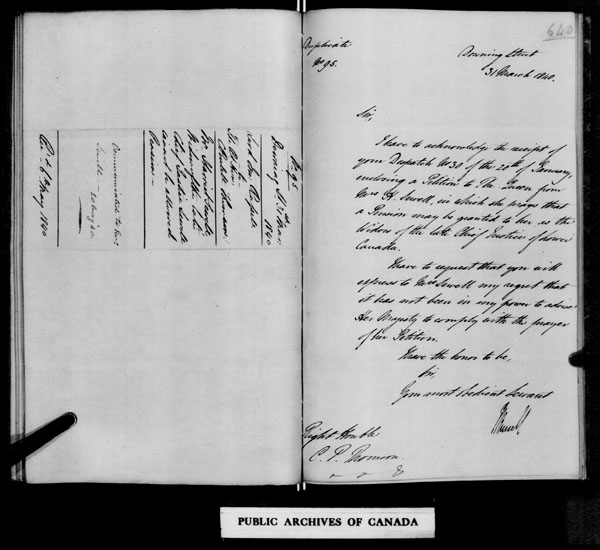 No 95
Downing St 31 Mar
1840
Lord John Russell
To Petition
Mrs Sewell's
and
Communicated to Mrs
Sewell
Rec. 6 May 1840
640
Duplicate
No 95.
Downing Street
31 March 1840.
Sir,
I have to acknowledge the receipt of
your Despatch No 30 of the 20th of January,
enclosing a Petition to The Queen from
Mrs H. Sewell, in which she prays that
a Pension may be granted to her as the
Widow of the late Chief Justice of Lower
Canada.
I have to request that you will
express to Mrs Sewell my regret that
it has not been in my power to advise
Her Majesty to comply with the prayer
of her Petition.
I have the honor to be,
Sir,
Your most obedient Servant
J Russell
Right Honble
C. P. Thomson.
PUBLIC ARCHIVES OF CANADA